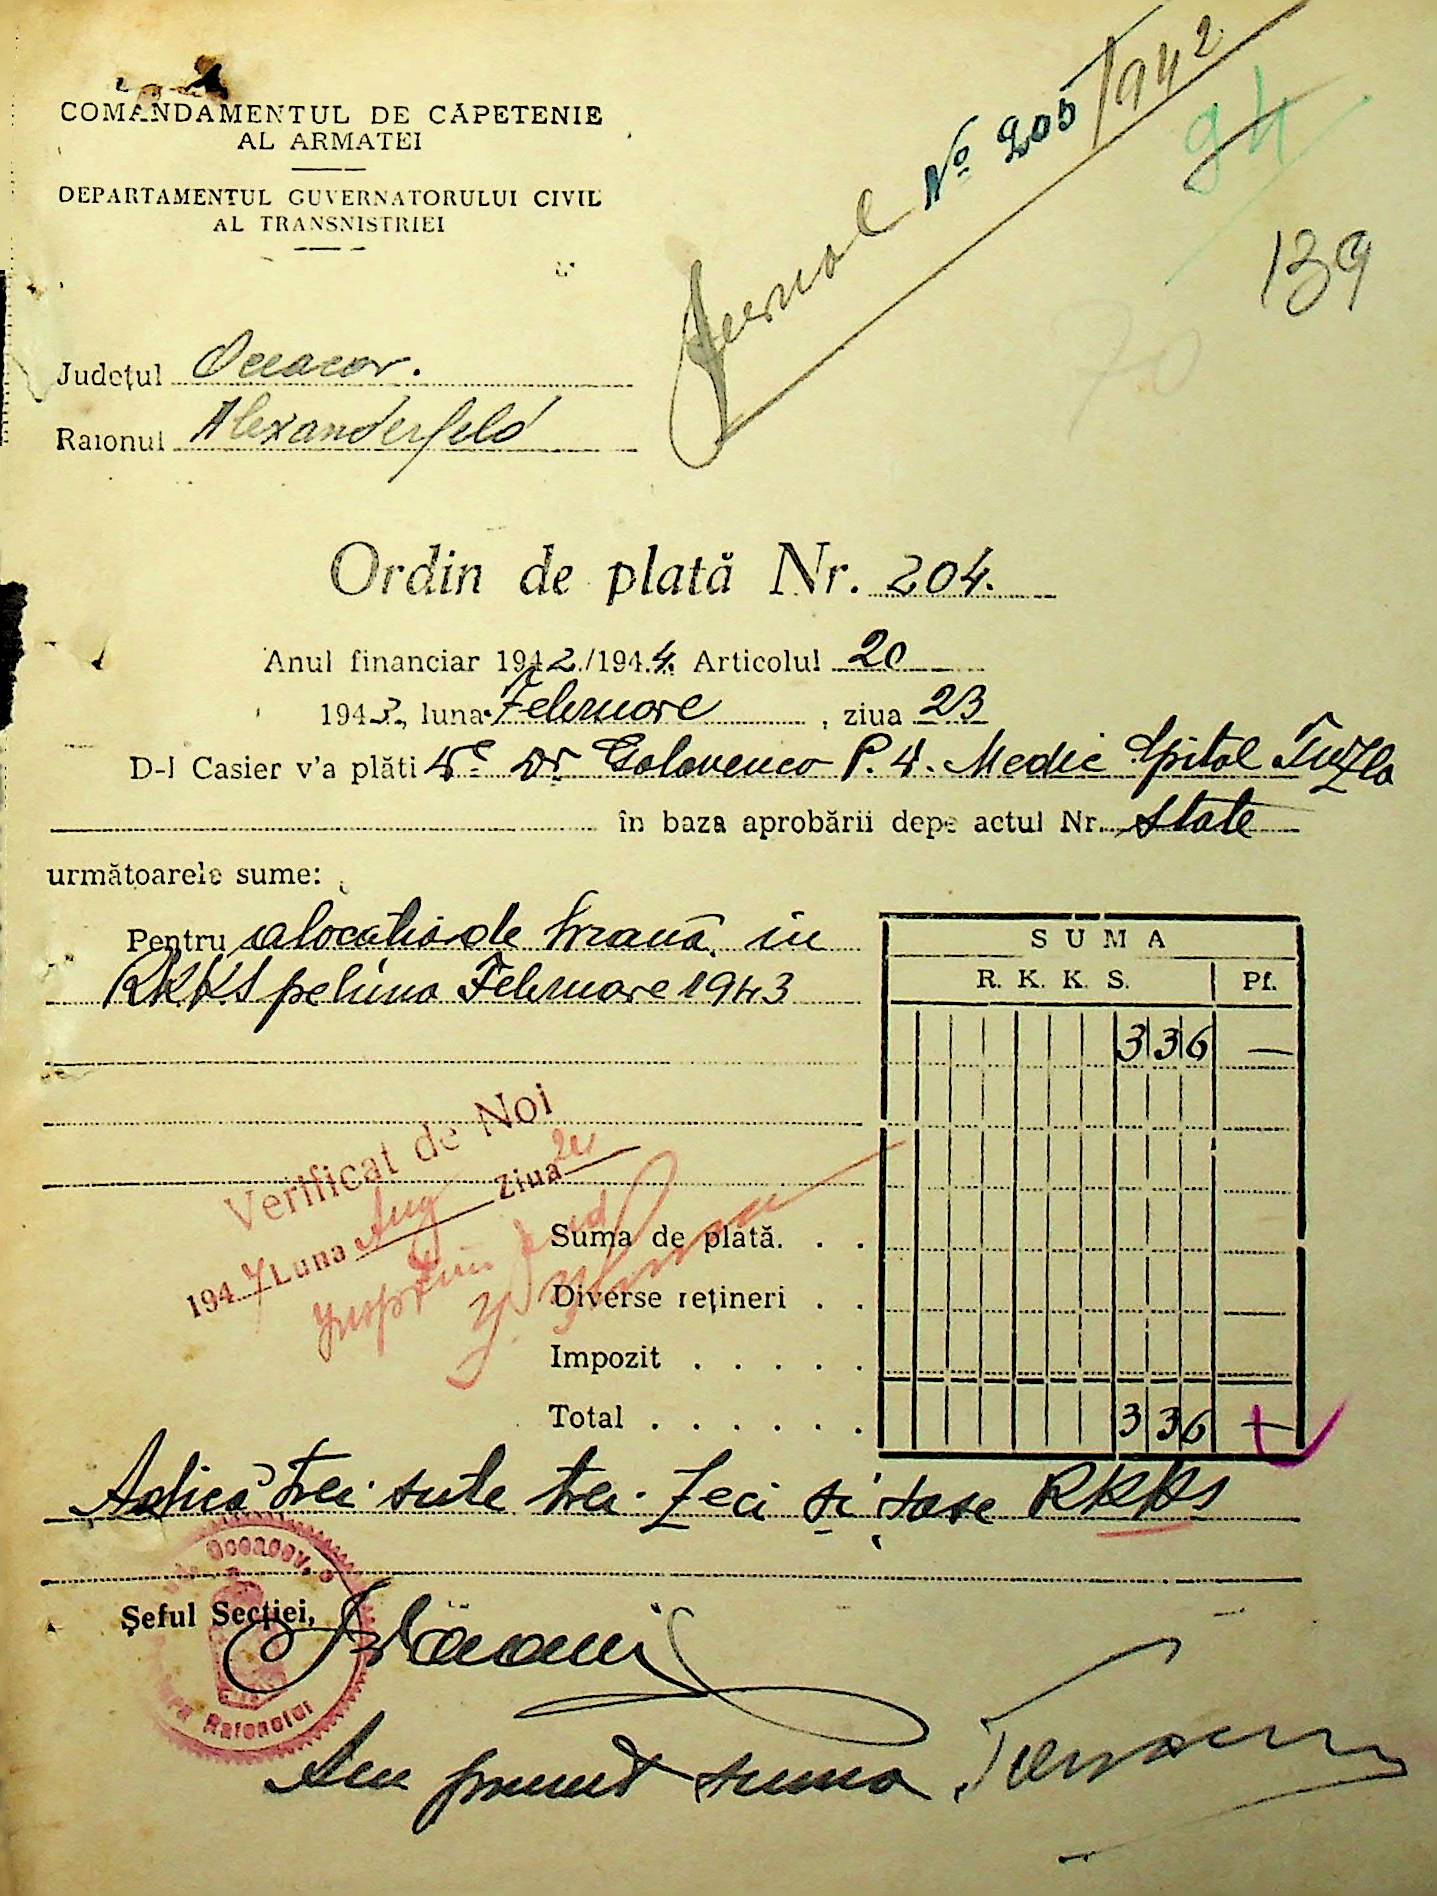 COMANDAMENTUL DE CĂPETENIE
AL ARMATEI
DEPARTAMENTUL GUVERNATORULUI CIVIL
AL TRANSNISTRIEI
Jurnal No 205/942
94
139
70
Județul Oceacov.
Raionul Alexanderfeld
Ordin de plată Nr. 204.
Anul financiar 1942./1944. Articolul 20
1943, luna Februore, ziua 23
D-l Casier v'a plăti Dr Golovenco P. Medic Spital Tuzla
în baza aprobării depe actul Nr. State
următoarele sume:
Pentru alocatia de hrană, in
RKKS pe luna Februore 1943
SUMA
R. K. K. S. Pf.
336 —
Verificat de Noi
194 Luna Aug Ziua
Suma de plată. . .
Diverse rețineri . .
Impozit . . . . .
Total . . . . . . 336 —
Adică trei sute trei zeci și șase RKKS
Șeful Secției,
Raionului
Am primit suma